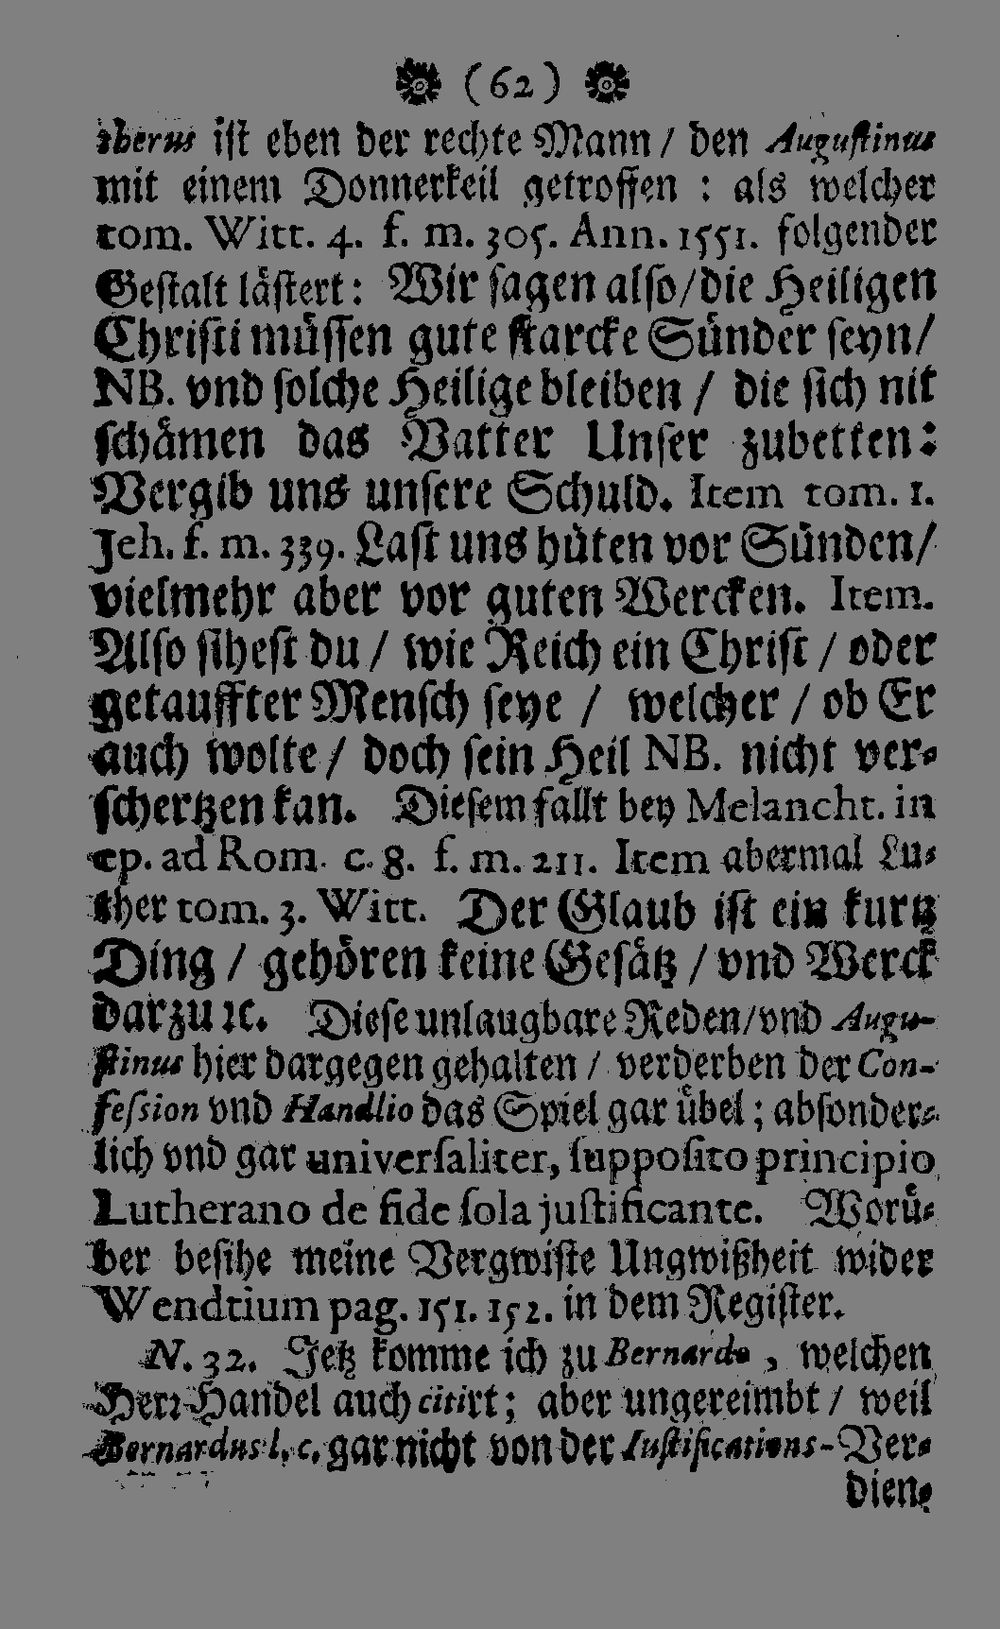 ❁ (62) ❁
therus ist eben der rechte Mann / den Augustinus
mit einem Donnerkeil getroffen : als welcher
tom. Witt. 4. f. m. 305. Ann. 1551. folgender
Gestalt lästert: Wir sagen also/die Heiligen
Christi müssen gute starcke Sünder seyn/
NB. vnd solche Heilige bleiben / die sich nit
schämen das Vatter Unser zubetten:
Vergib uns unsere Schuld. Item tom. 1.
Jeh. f. m. 339. Last uns hüten vor Sünden/
vielmehr aber vor guten Wercken. Item.
Also sihest du / wie Reich ein Christ / oder
getauffter Mensch seye / welcher / ob Er
auch wolte / doch sein Heil NB. nicht ver-
schertzen kan. Diesem fallt bey Melancht. in
ep. ad Rom. c. 8. f. m. 211. Item abermal Lu-
ther tom. 3. Witt. Der Glaub ist ein kurtz
Ding / gehören keine Gesätz / vnd Werck
darzu ꝛc. Diese unlaugbare Reden/vnd Augu-
stinus hier dargegen gehalten / verderben der Con-
fession vnd Handlio das Spiel gar übel ; absonder-
lich vnd gar universaliter, supposito principio
Lutherano de fide sola justificante. Worü-
ber besihe meine Vergwiste Ungwißheit wider
Wendtium pag. 151. 152. in dem Register.
N. 32. Jetz komme ich zu Bernardo, welchen
Herr Handel auch citirt; aber ungereimbt / weil
Bernardus l. c. gar nicht von der Iustifications-Ver-
dien-